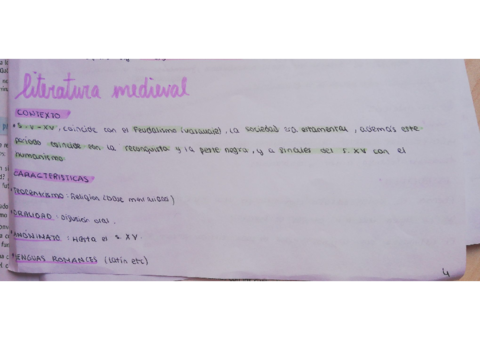 literatura medieval
CONTEXTO
• S. V - XV, coincide con el Feudalismo (vasallaje), la sociedad era estamental, además este
periodo coincide con la reconquista y la peste negra, y a finales del s. XV con el
humanismo
CARACTERISTICAS
• TEOCENTRISMO: Religion (Dios mueve mundo)
• ORALIDAD: Difusión oral.
• ANONIMATO: Hasta el s. XV.
• LENGUAS ROMANCES (latin etc)
4